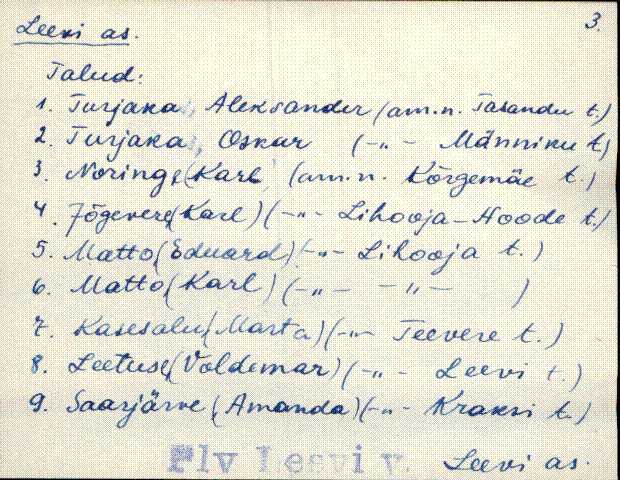 3.
Leevi as.
Talud:
1. Turjaka, Aleksander (am.n. Tasandu t.)
2. Turjaka, Oskur (-„- Männiku t.)
3. Noringi (Karl) (am.n. Kõrgemäe t.)
4. Jõgevere (Karl) (-„- Lihooja-Hoode t.)
5. Matto (Eduard) (-„- Lihooja t.)
6. Matto (Karl) (-„- -„- )
7. Kasesalu (Marta) (-„- Teevere t.)
8. Leetuse (Voldemar) (-„- Leevi t.)
9. Saarjärve (Amanda) (-„- Kraksi t.)
Plv Leevi v. Leevi as.